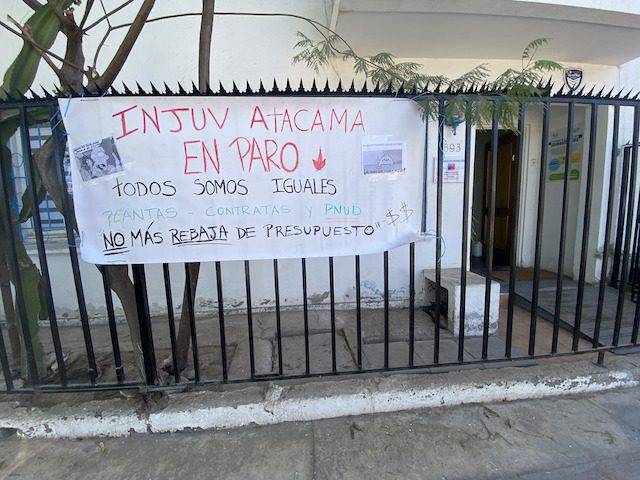 INJUV ATACAMA
EN PARO
TODOS SOMOS IGUALES
PLANTAS - CONTRATAS Y PNUD
NO MÁS REBAJA DE PRESUPUESTO" $$
893